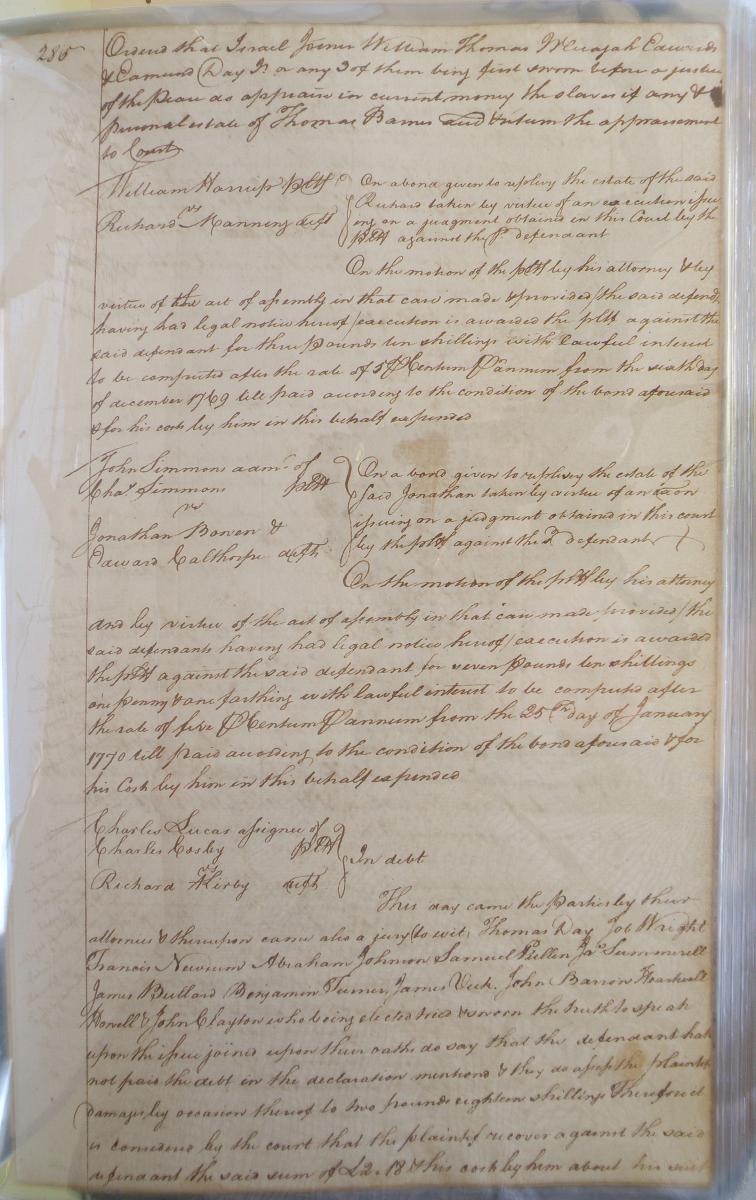 286
Ordered that Israel Joiner William Thomas Micajah Edwards
& Edmund Day Jr or any 3 of them being first sworn before a justice
of the Peace do appraise in current money the slaves if any &
personal estate of Thomas Barnes and return the appraisement
to Court
William Harriss pltf
vs
Richard Manning deft
On a bond given to replevy the estate of the said
Richard taken by virtue of an execution issu
ing on a judgment obtained in this Court by the
pltf against the sd defendant
On the motion of the pltf by his attorney & by
virtue of the act of assembly in that case made & provided (the said defendt
having had legal notice hereof) execution is awarded the pltf against the
said defendant for three Pounds ten shillings with lawful interest
to be computed after the rate of 5 P Centum P annum from the sixth day
of december 1769 till paid according to the condition of the bond aforesaid
& for his costs by him in this behalf expended
John Simmons admr of
Chas Simmons pltf
vs
Jonathan Bowen &
Edward Calthorpe defts
On a bond given to replevy the estate of the
said Jonathan taken by virtue of an exon
issuing on a judgment obtained in this court
by the pltf against the sd defendant
On the motion of the pltf by his attorney
and by virtue of the act of assembly in that case made provided (the
said defendants having had legal notice hereof) execution is awarded
the pltf against the said defendant for seven Pounds ten shillings
one penny & one farthing with lawful interest to be computed after
the rate of five P Centum P annum from the 25th day of January
1770 till paid according to the condition of the bond aforesaid & for
his Cost by him in this behalf expended
Charles Lucas assignee of
Charles Cosby pltf
vs
Richard Kirby deft
In debt
This day came the parties by their
attornies & thereupon came also a jury (to wit) Thomas Day Job Wright
Francis Newsum Abraham Johnson Samuel Pullen Jas Summerell
James Bullard Benjamin Turner James Vick John Barrow Hardewell
Howell & John Clayton who being elected tried & sworn the truth to speak
upon the issue joined upon their oaths do say that the defendant hath
not paid the debt in the declaration mentiond & they do assess the plaintifs
damages by occasion thereof to two pounds eighteen shillings Therefore it
is considered by the court that the plaintif recover against the said
defendant the said sum of £2.18 & his cost by him about his suit